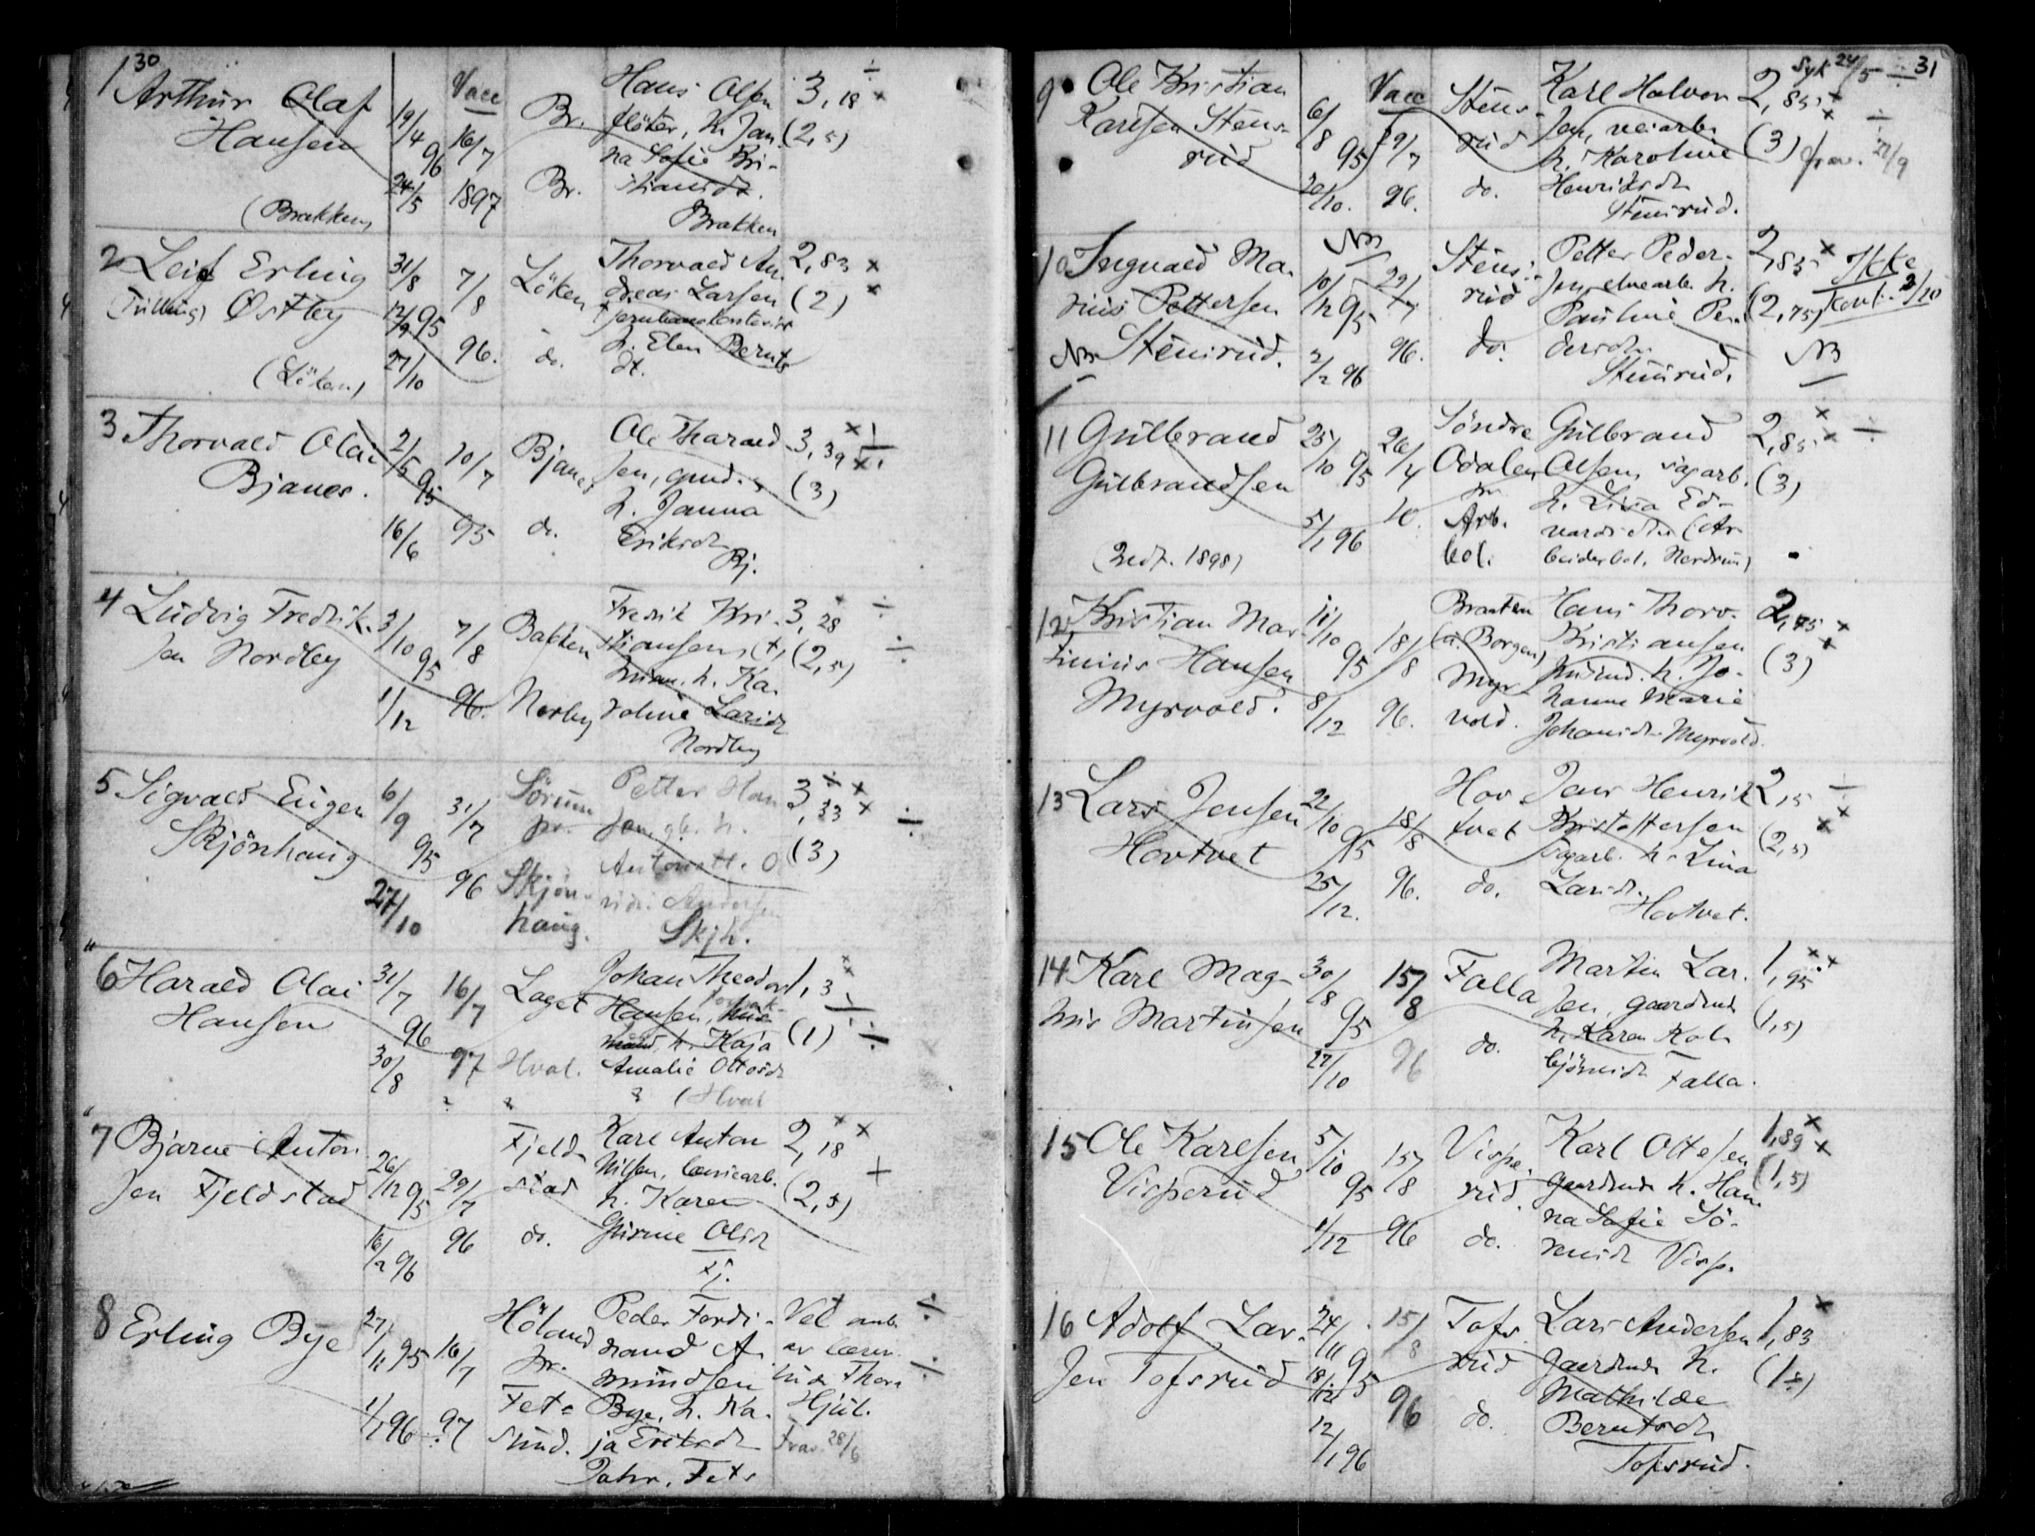 30
Vacc
1 Arthur Olaf
Hansen
(Brakken)
19/4 96
24/5
16/7
1897
Br.
Br.
Hans Olsen
fløter, h. Jan
na Sofie Kri-
stiansd.
Brakken
3,18
(2,5)
2 Leif Erling
(Tvilling) Østby
(Löken)
31/8
12/9 95
27/10
7/8
96.
Löken
do.
Thorvald An
dreas Larsen
h. Elen Bernts
dt.
2,83
(2)
3 Thorvald Olai
Bjanes.
2/5 95
16/6
20/7
95
Bjanes
do.
Ole Tharald
sen, gmd.
h. Janna
Eriksd.
Bj.
3,39
(3)
4 Ludvig Fredrik-
sen Nordby
3/10 95
1/12
7/8
96.
Bakken
Norby
Fredrik Kri-
stiansen, (+)
h. Ka-
roline Larsd.
Nordby
3,28
(2,5)
5 Sigvald Eugen
Skjönhaug
6/9
95
27/10
31/7
96
Sørum
pr.
Skjön-
haug.
Petter Han
sen gb. h.
Antonett. O
Andersen
Skjh.
3,33
(3)
6 Harald Olai
Hansen
31/7
96
30/8
16/7
97
Laget
Hval.
Johan Theodor
Hansen,
h. Kaja
Amalie Ottosd.
(Hval
1,3
(1)
7 Bjarne Anton
sen Fjeldstad
26/12 95
16/2 96
29/7
96
Fjeld-
stad
do.
Karl Anton
Nilsen, løsearb.
h. Karen
Gurine Olsd.
Fj.
2,18
(2,5)
8 Erling Bye
27/11 95
1/1 96
16/7
97
Höland
pr.
Fet-
sund.
Peder Ferdi-
nand A-
mundsen
Bye, h. Ka-
ja Eriksd.
Dahr, Fets
Vel anb.
av lærer-
inde Thora
Hjul.
frav. 28/6
31
Vacc
9 Ole Kristian
Karlsen Stens-
rud
6/8 95
20/10.
29/7
96.
Stens-
rud
do.
Karl Halvor
sen, veiarb.
h. Karoline
Henriksd.
Stensrud.
2,85
(3)
Syk 24/5
frav. 27/9
10 Ingvald Ma-
rius Pettersen
NB Stensrud.
NB
10/12 95
2/2 96
29/7
96.
Stens-
rud
do.
Petter Peder-
sen, elvearb. h.
Pauline Pe-
dersd.
Stensrud.
2,85
(2,75)
Ikke
konf. 3/10
NB
11 Gulbrand
Gulbrandsen
(Redt. 1898)
25/10 95
5/1 96
26/4
10.
Söndre
Odalen
pr.
Arb.
bol.
Gulbrand
Olsen, sagarb.
h. Lina Ed-
vardsdtr. (Ar-
beiderbol. Nerdrum)
2,85
(3)
12 Kristian Mar
tinius Hansen
Myrvold.
11/10
95
8/12
18/8
96.
Braaten
(u. Borgen)
Myr-
vold.
Hans Thorv.
Kristiansen
h. Jo-
hanne Marie
Johansd. Myrvold.
2,75
(3)
13 Lars Jensen
Hovtvet
22/10
95
25/12.
18/8
96.
Hov-
tvet
do.
Jens Henrik
Kristoffersen
sagarb. h. Lina
Larsd.
Hovtvet.
2,15
(2,5)
14 Karl Mag-
nus Martinsen
30/8
95
27/10
15/8
96
Falla
do.
Martin Lar-
sen, gaardmd.
h. Karen Kol-
björnsd. Falla.
1,95
(1,5)
15 Ole Karlsen
Visperud
5/10
95
1/12
15/8
96
Vispe-
rud
do.
Karl Ottesen
gaardmd. h. Han-
na Sofie Sö-
rensd. Visp.
1,89
(1,5)
16 Adolf Lar-
sen Tofsrud
24/11
95
18/12
12/1 96
15/8
96
Tofs-
rud
do.
Lars Andersen
gaardmd. h.
Mathilde
Berntsd.
Tofsrud.
1,83